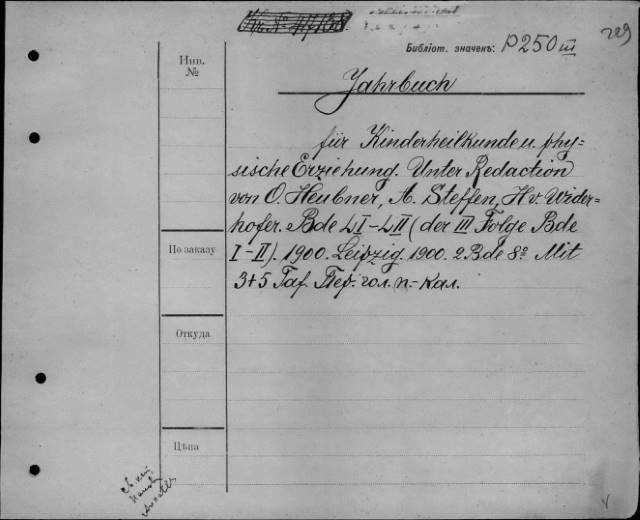 Библіот. значекъ: P250 III
229
Инв.
№
Jahrbuch
für Kinderheilkunde u. phy-
sische Erziehung. Unter Redaction
von O. Heubner, A. Steffen, H. v. Wider-
hofer. Bde LI-LII (der III Folge Bde
I-II). 1900. Leipzig. 1900. 2 Bde 8º. Mit
3+5 Taf. Пер. гол. п.-кал.
По заказу
Откуда
Цѣна